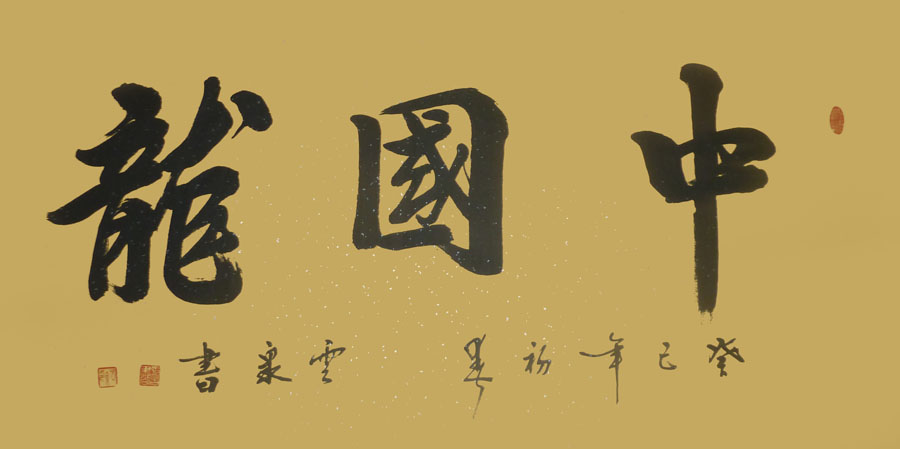 中國龍
癸巳年初春 雲泉書